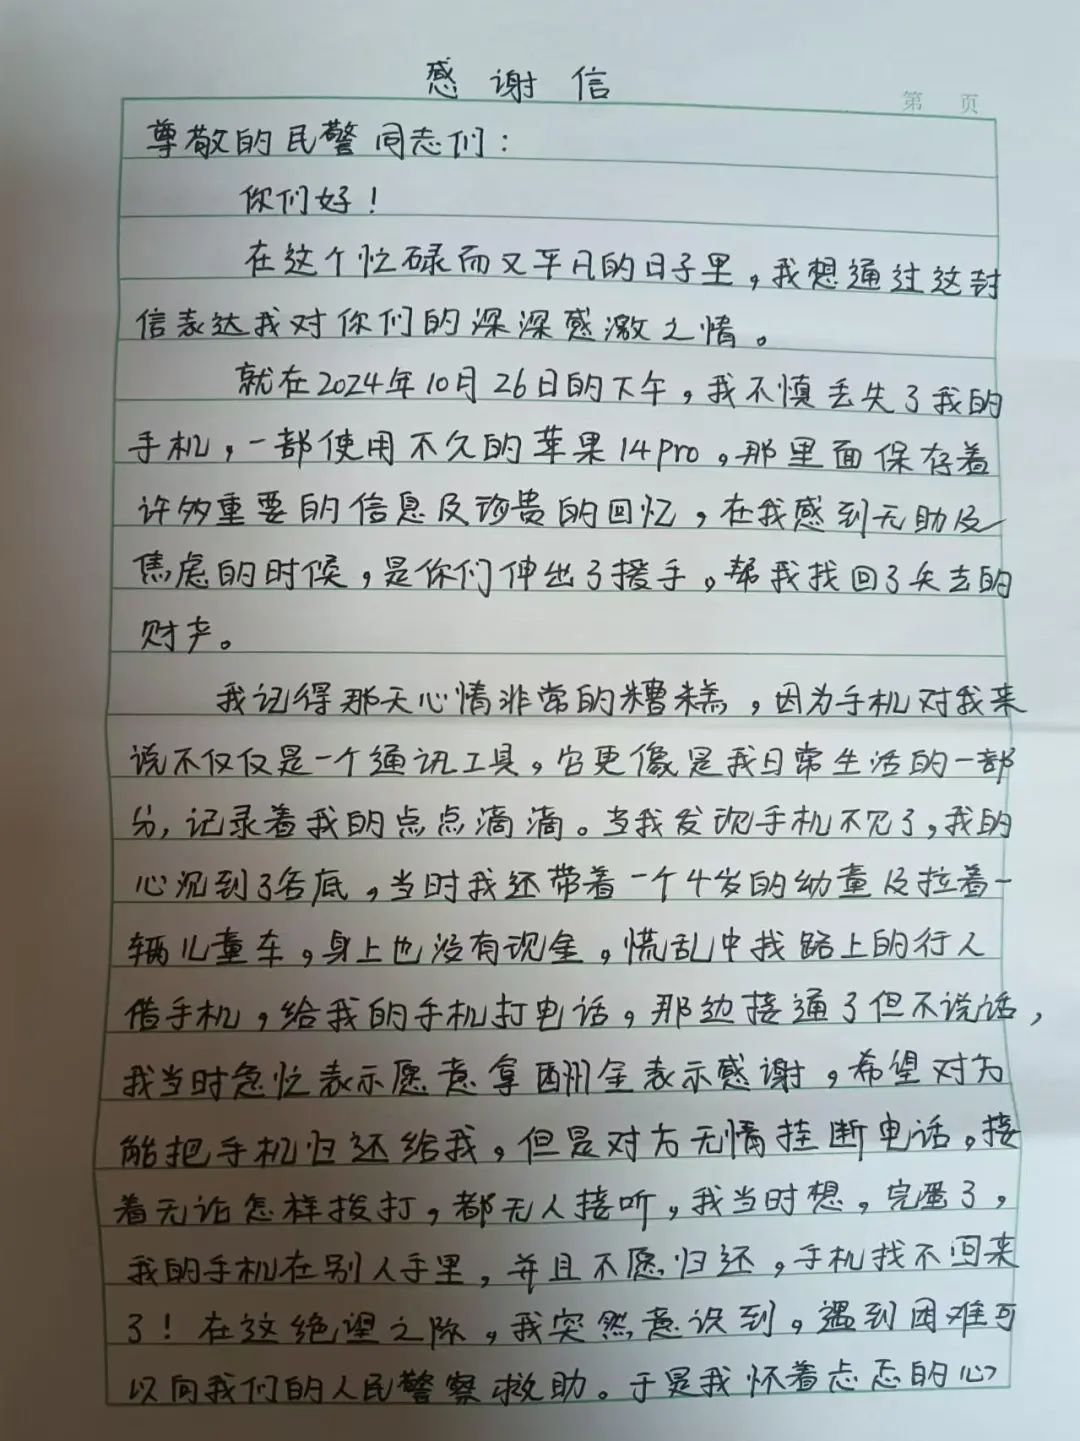 感谢信
第 页
尊敬的民警同志们:
你们好!
在这个忙碌而又平凡的日子里,我想通过这封
信表达我对你们的深深感激之情。
就在2024年10月26日的下午,我不慎丢失了我的
手机,一部使用不久的苹果14pro。那里面保存着
许多重要的信息及珍贵的回忆,在我感到无助及
焦虑的时候,是你们伸出了援手,帮我找回了失去的
财产。
我记得那天心情非常的糟糕,因为手机对我来
说不仅仅是一个通讯工具,它更像是我日常生活的一部
分,记录着我的点点滴滴。当我发现手机不见了,我的
心沉到了谷底,当时我还带着一个4岁的幼童及拉着一
辆儿童车,身上也没有现金,慌乱中找路上的行人
借手机,给我的手机打电话,那边接通了但不说话,
我当时急忙表示愿意拿酬金表示感谢,希望对方
能把手机归还给我,但是对方无情挂断电话,接
着无论怎样拨打,都无人接听,我当时想,完蛋了,
我的手机在别人手里,并且不愿归还,手机找不回来
了!在这绝望之际,我突然意识到,遇到困难可
以向我们的人民警察救助。于是我怀着忐忑的心